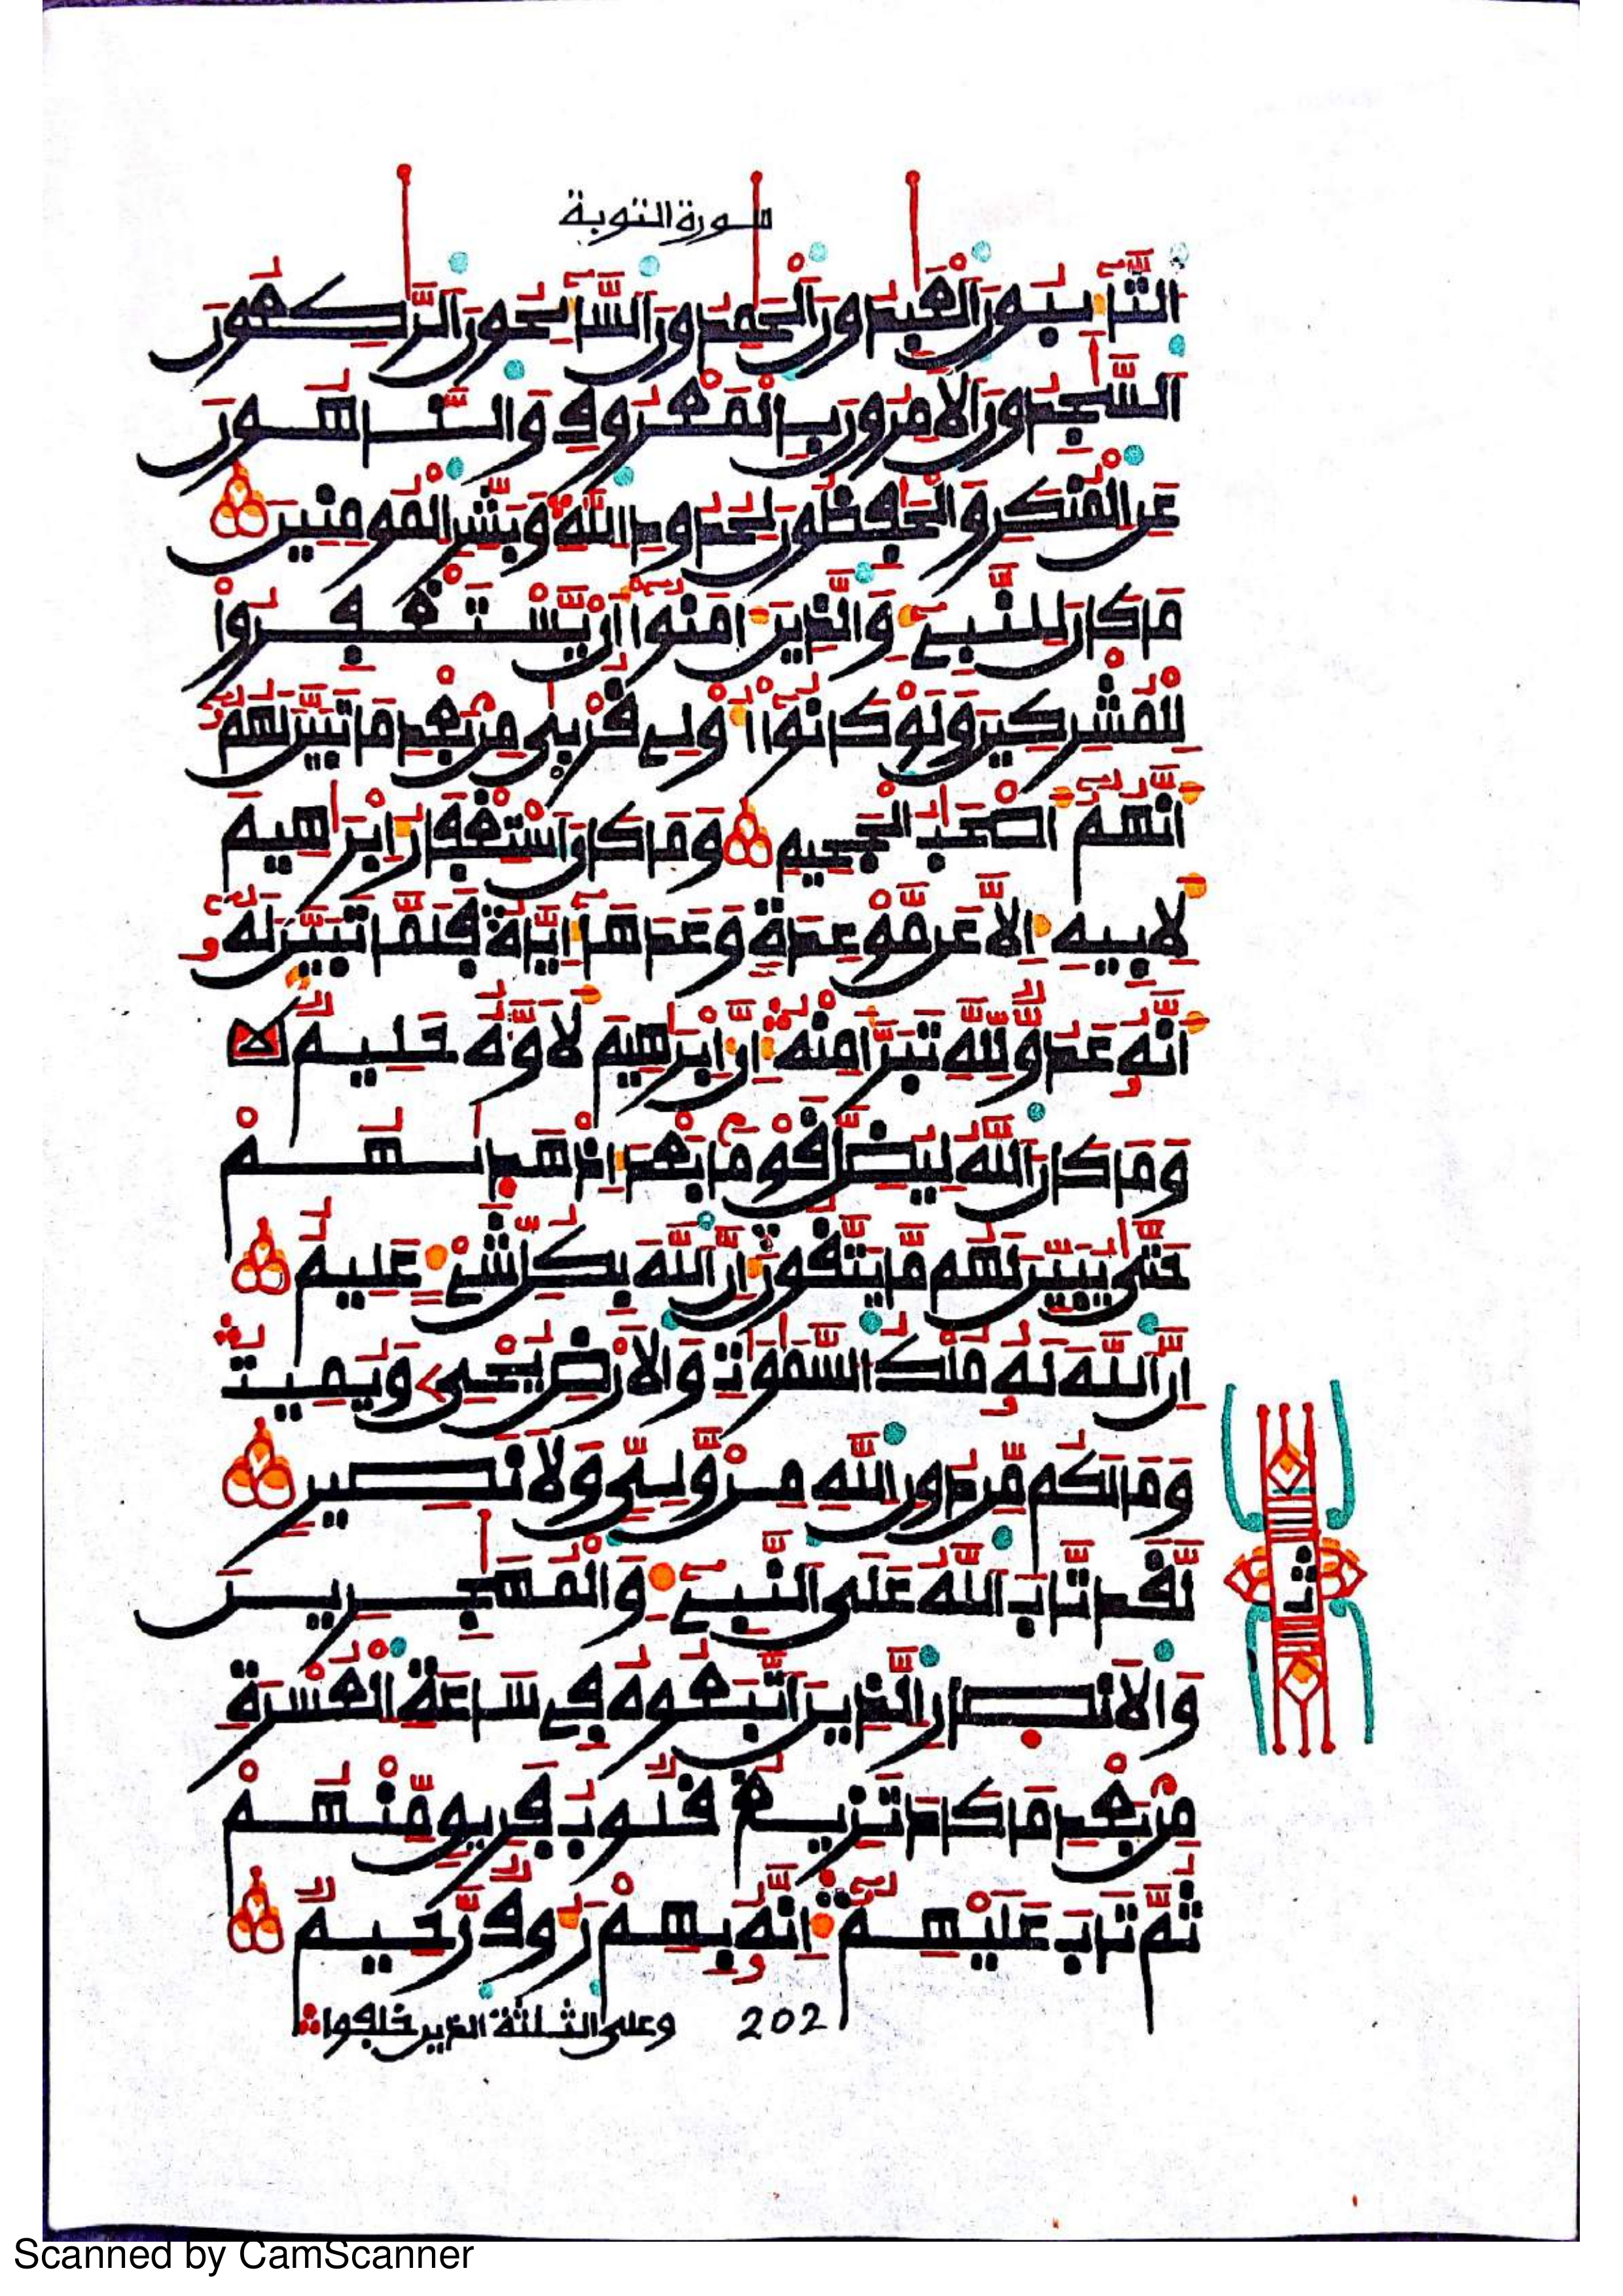 سورة التوبة
اَلتَّٰٓئِبُونَ اَلْعَٰبِدُونَ اَلْحَٰمِدُونَ اَلسَّٰٓئِحُونَ اَلرَّٰكِعُونَ
اَلسَّٰجِدُونَ اَلَامِرُونَ بِالْمَعْرُوفِ وَالنَّاهُونَ
عَنِ الْمُنكَرِ وَالْحَٰفِظُونَ لِحُدُودِ اللَّهِ وَبَشِّرِ الْمُومِنِينَ
مَا كَانَ لِلنَّبِيٓءِ وَالذِينَ ءَامَنُوٓا أَنْ يَّسْتَغْفِرُوا
لِلْمُشْرِكِينَ وَلَوْ كَانُوٓا أُوْلِى قُرْبَىٰ مِنۢ بَعْدِ مَا تَبَيَّنَ لَهُمُۥٓ
أَنَّهُمُۥٓ أَصْحَٰبُ الْجَحِيمِ وَمَا كَانَ اَسْتِغْفَارُ إِبْرَٰهِيمَ
لِأَبِيهِ إِلَّا عَن مَّوْعِدَةٍ وَعَدَهَآ إِيَّاهُ فَلَمَّا تَبَيَّنَ لَهُۥٓ
أَنَّهُۥ عَدُوٌّ لِّلهِ تَبَرَّأَ مِنْهُ إِنَّ إِبْرَٰهِيمَ لَأَوَّٰهٌ حَلِيمٌ
وَمَا كَانَ اَللَّهُ لِيُضِلَّ قَوْماً بَعْدَ إِذْ هَدَىٰهُمْ
حَتَّىٰ يُبَيِّنَ لَهُم مَّا يَتَّقُونَ إِنَّ اَللَّهَ بِكُلِّ شَيْءٍ عَلِيمٌ
اِنَّ اَللَّهَ لَهُۥ مُلْكُ السَّمَٰوَٰتِ وَالَارْضِ يُحْىِۦ وَيُمِيتُ
وَمَا لَكُم مِّن دُونِ اللَّهِ مِنْ وَّلِيٍّ وَلَا نَصِيرٍ
لَّقَد تَّابَ اَللَّهُ عَلَى اَلنَّبِيٓءِ وَالْمُهَٰجِرِينَ
وَالَانصِارِ اِلذِينَ اَتَّبَعُوهُ فِى سَاعَةِ الْعُسْرَةِ
مِنۢ بَعْدِ مَا كَادَ تَزِيغُ قُلُوبُ فَرِيقٍ مِّنْهُمْ
ثُمَّ تَابَ عَلَيْهِمُۥٓ إِنَّهُۥ بِهِمْ رَءُوفٌ رَّحِيمٌ
202 وعلى الثلثة الذين خلفوا
ث
Scanned by CamScanner